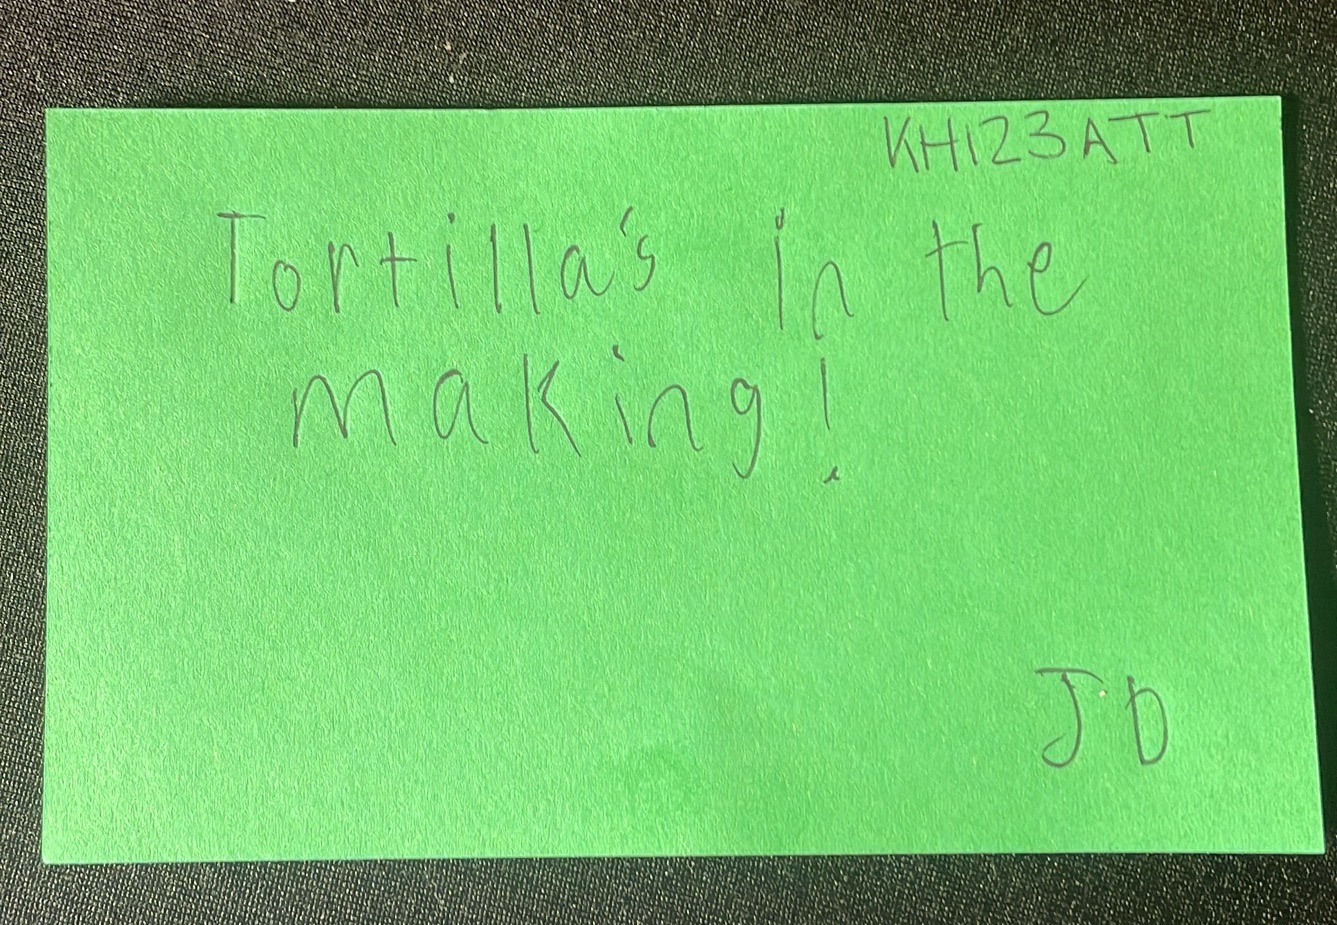 KH123ATT
Tortilla's in the
making!
JD